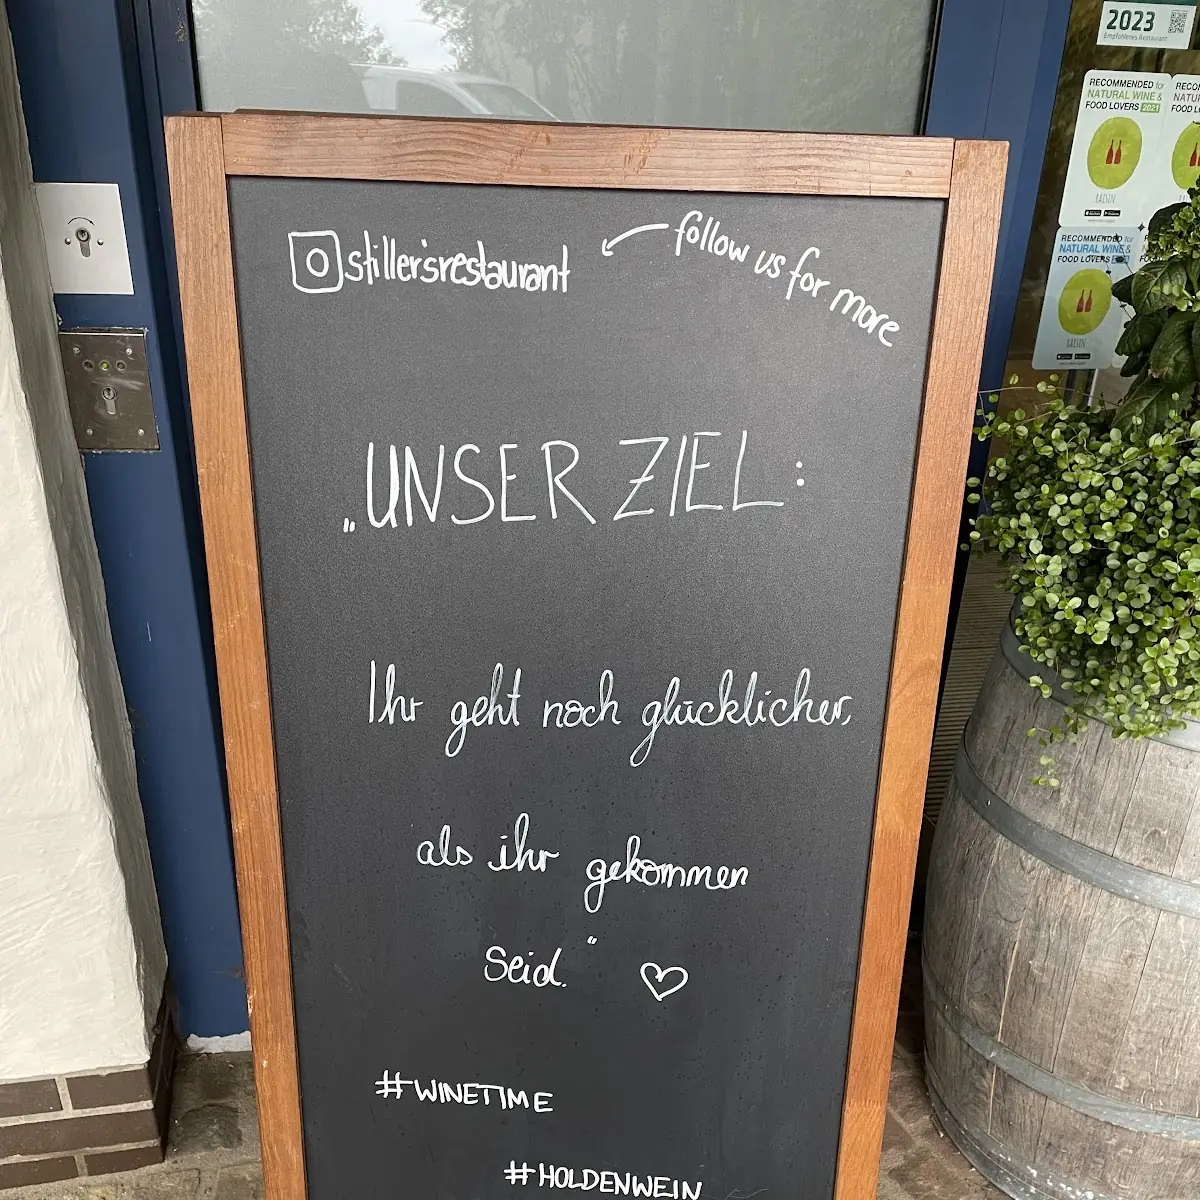 stiller'srestaurant
follow us for more
„UNSER ZIEL:
Ihr geht noch glücklicher,
als ihr gekommen
seid.“
#WINETIME
#HOLDENWEIN
2023
Empfohlenes Restaurant
RECOMMENDED for
NATURAL WINE &
FOOD LOVERS 2021
RAISIN
RECOMMENDED for
NATURAL WINE &
FOOD LOVERS
RAISIN